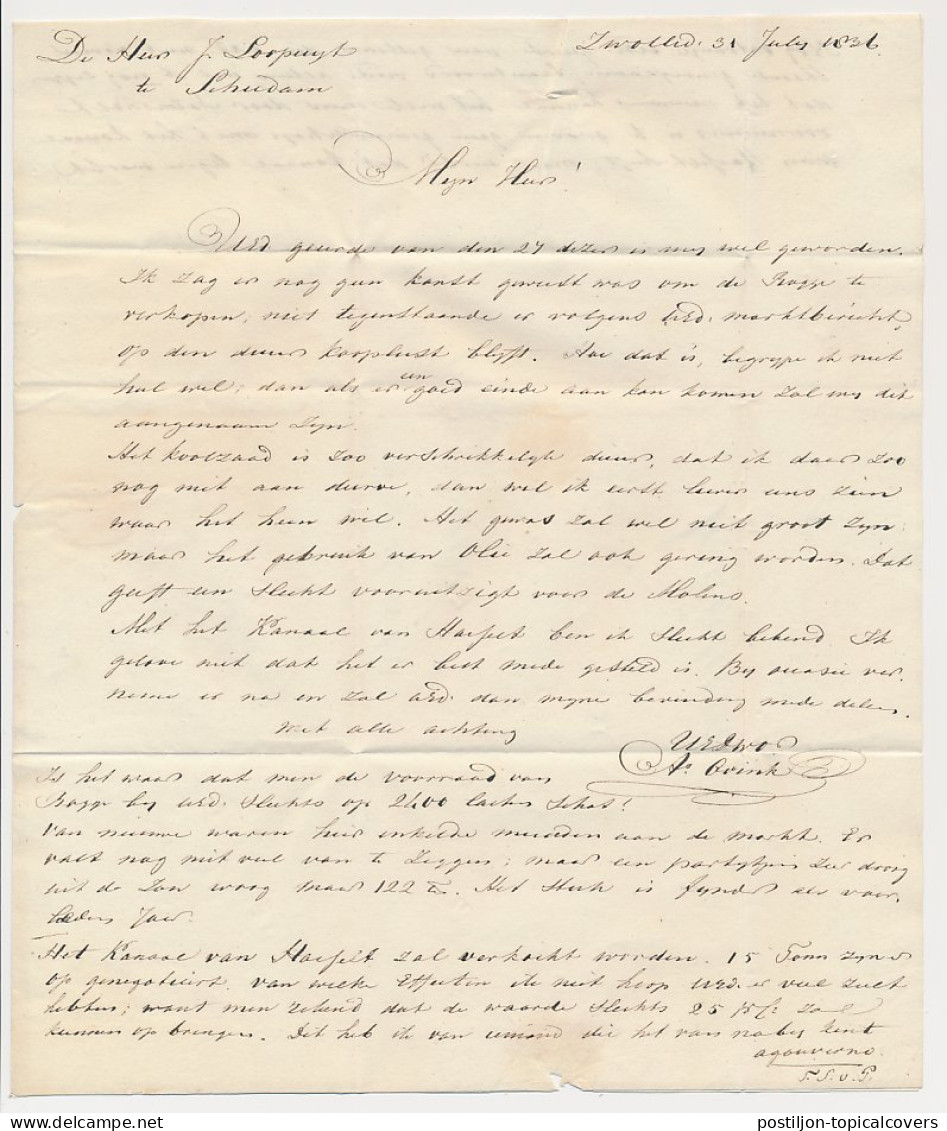 De Heer J. Loopuyt
Zwolle. 31 July 1836
te Schiedam
Mijn Heer!
UEd. geeerde van den 27 dezer is mij wel geworden.
Ik zag er nog geen kans geweest was om de Rogge te
verkopen, niet tegenstaande er volgens UEd. marktbericht,
op den duur kooplust blyft. Hoe dat is, begrype ik niet
heel wel; dan als er een goed einde aan kan komen zal mij dit
aangenaam zyn.
Het koolzaad is zoo verschrikkelyk duur, dat ik daar zoo
nog niet aan durve, dan wel ik eerst liever eens zien
waar het heen wil. Het gewas zal wel niet groot zyn
maar het gebruik van Olie zal ook gering worden. Dat
geeft een slecht vooruitzigt voor de Molens.
Met het Kanaal van Hasselt ben ik slecht bekend Ik
gelove niet dat het er best mede gesteld is. By occasie ver
neme er na en zal UEd. dan myne bevinding mede delen.
met alle achting
UEDWD
As. Ovink
Is het waar dat men de voorraad van
Rogge by UEd. slechts op 2400 lasten schat!
Van nieuwe waren hier enkelde mudden aan de markt. Er
valt nog niet veel van te zeggen; maar een partytjen zeer droog
uit de zon woog maar 122 lb. Het stuk is fynder als voor
leden Jaar.
Het Kanaal van Hasselt zal verkocht worden. 15 Tonn zyn er
op genegotieert. van welke Effecten ik niet hoop UEd. er veel zult
hebben; want men rekend dat de waarde slechts 25 pct zal
kunnen op brengen. Dit heb ik van iemand die het van naby kent
agouverno.
T.S.v.P.
postiljon-topicalcovers
postiljon-topicalcovers.com